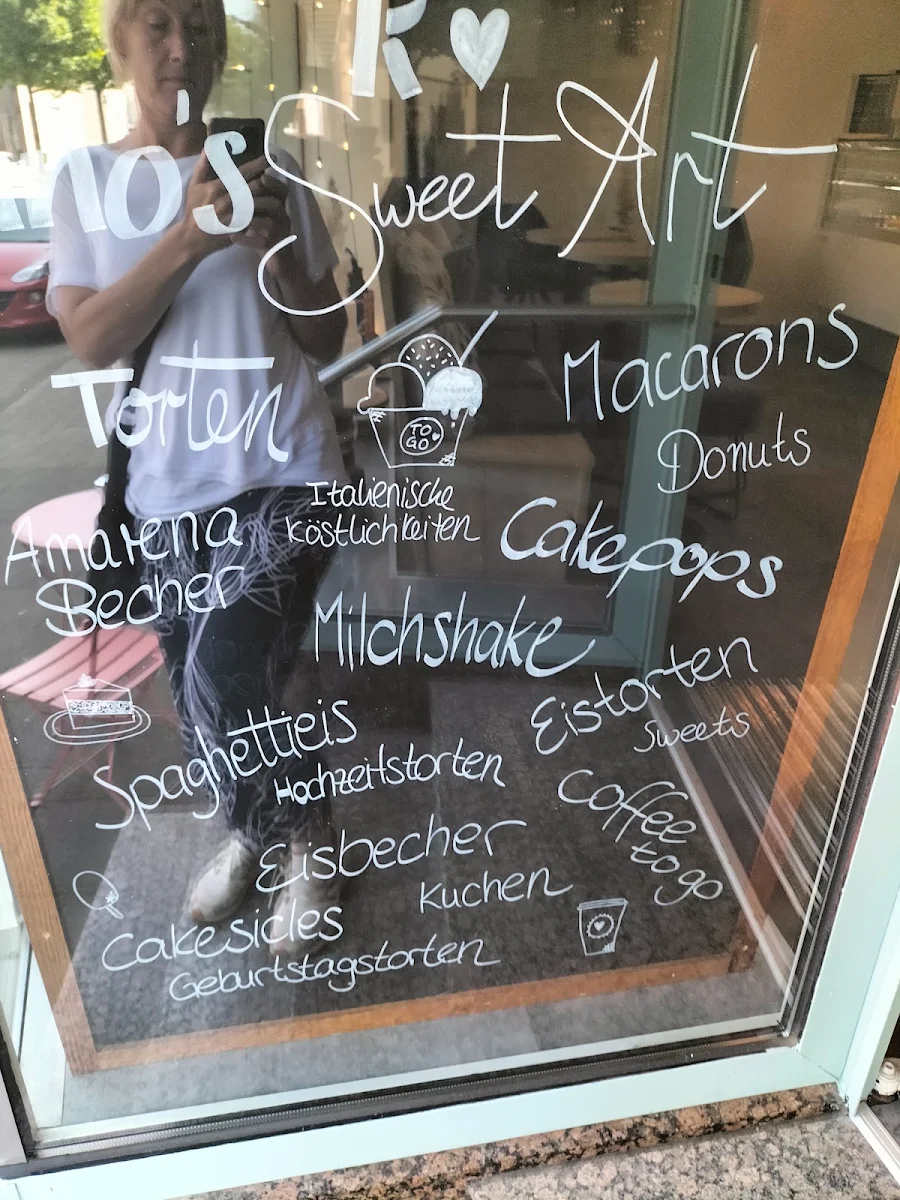 Sweet Art
Torten
TO
GO
Macarons
Donuts
Italienische
Köstlichkeiten
Amarena
Becher
Cakepops
Milchshake
Eistorten
Sweets
Spaghettieis
Hochzeitstorten
Coffee
to go
Eisbecher
Kuchen
Cakesicles
Geburtstagstorten